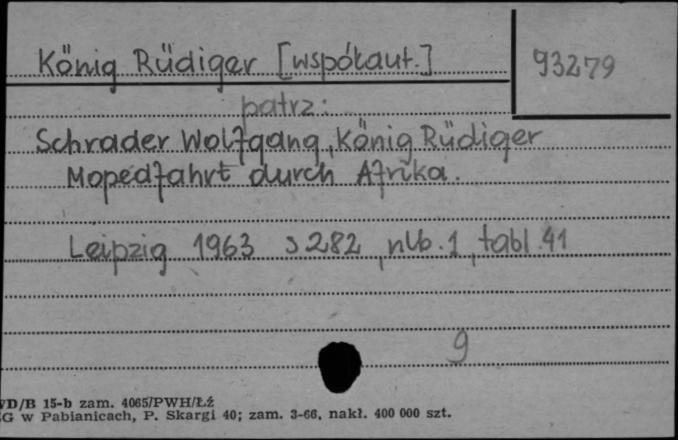 König Rüdiger [współaut.]
93279
patrz:
Schrader Wolfgang, König Rüdiger
Mopedfahrt durch Afrika.
Leipzig 1963 s 282, nlb. 1, tabl. 41
9
VD/B 15-b zam. 4065/PWH/Łź
ZG w Pabianicach, P. Skargi 40; zam. 3-66, nakł. 400 000 szt.